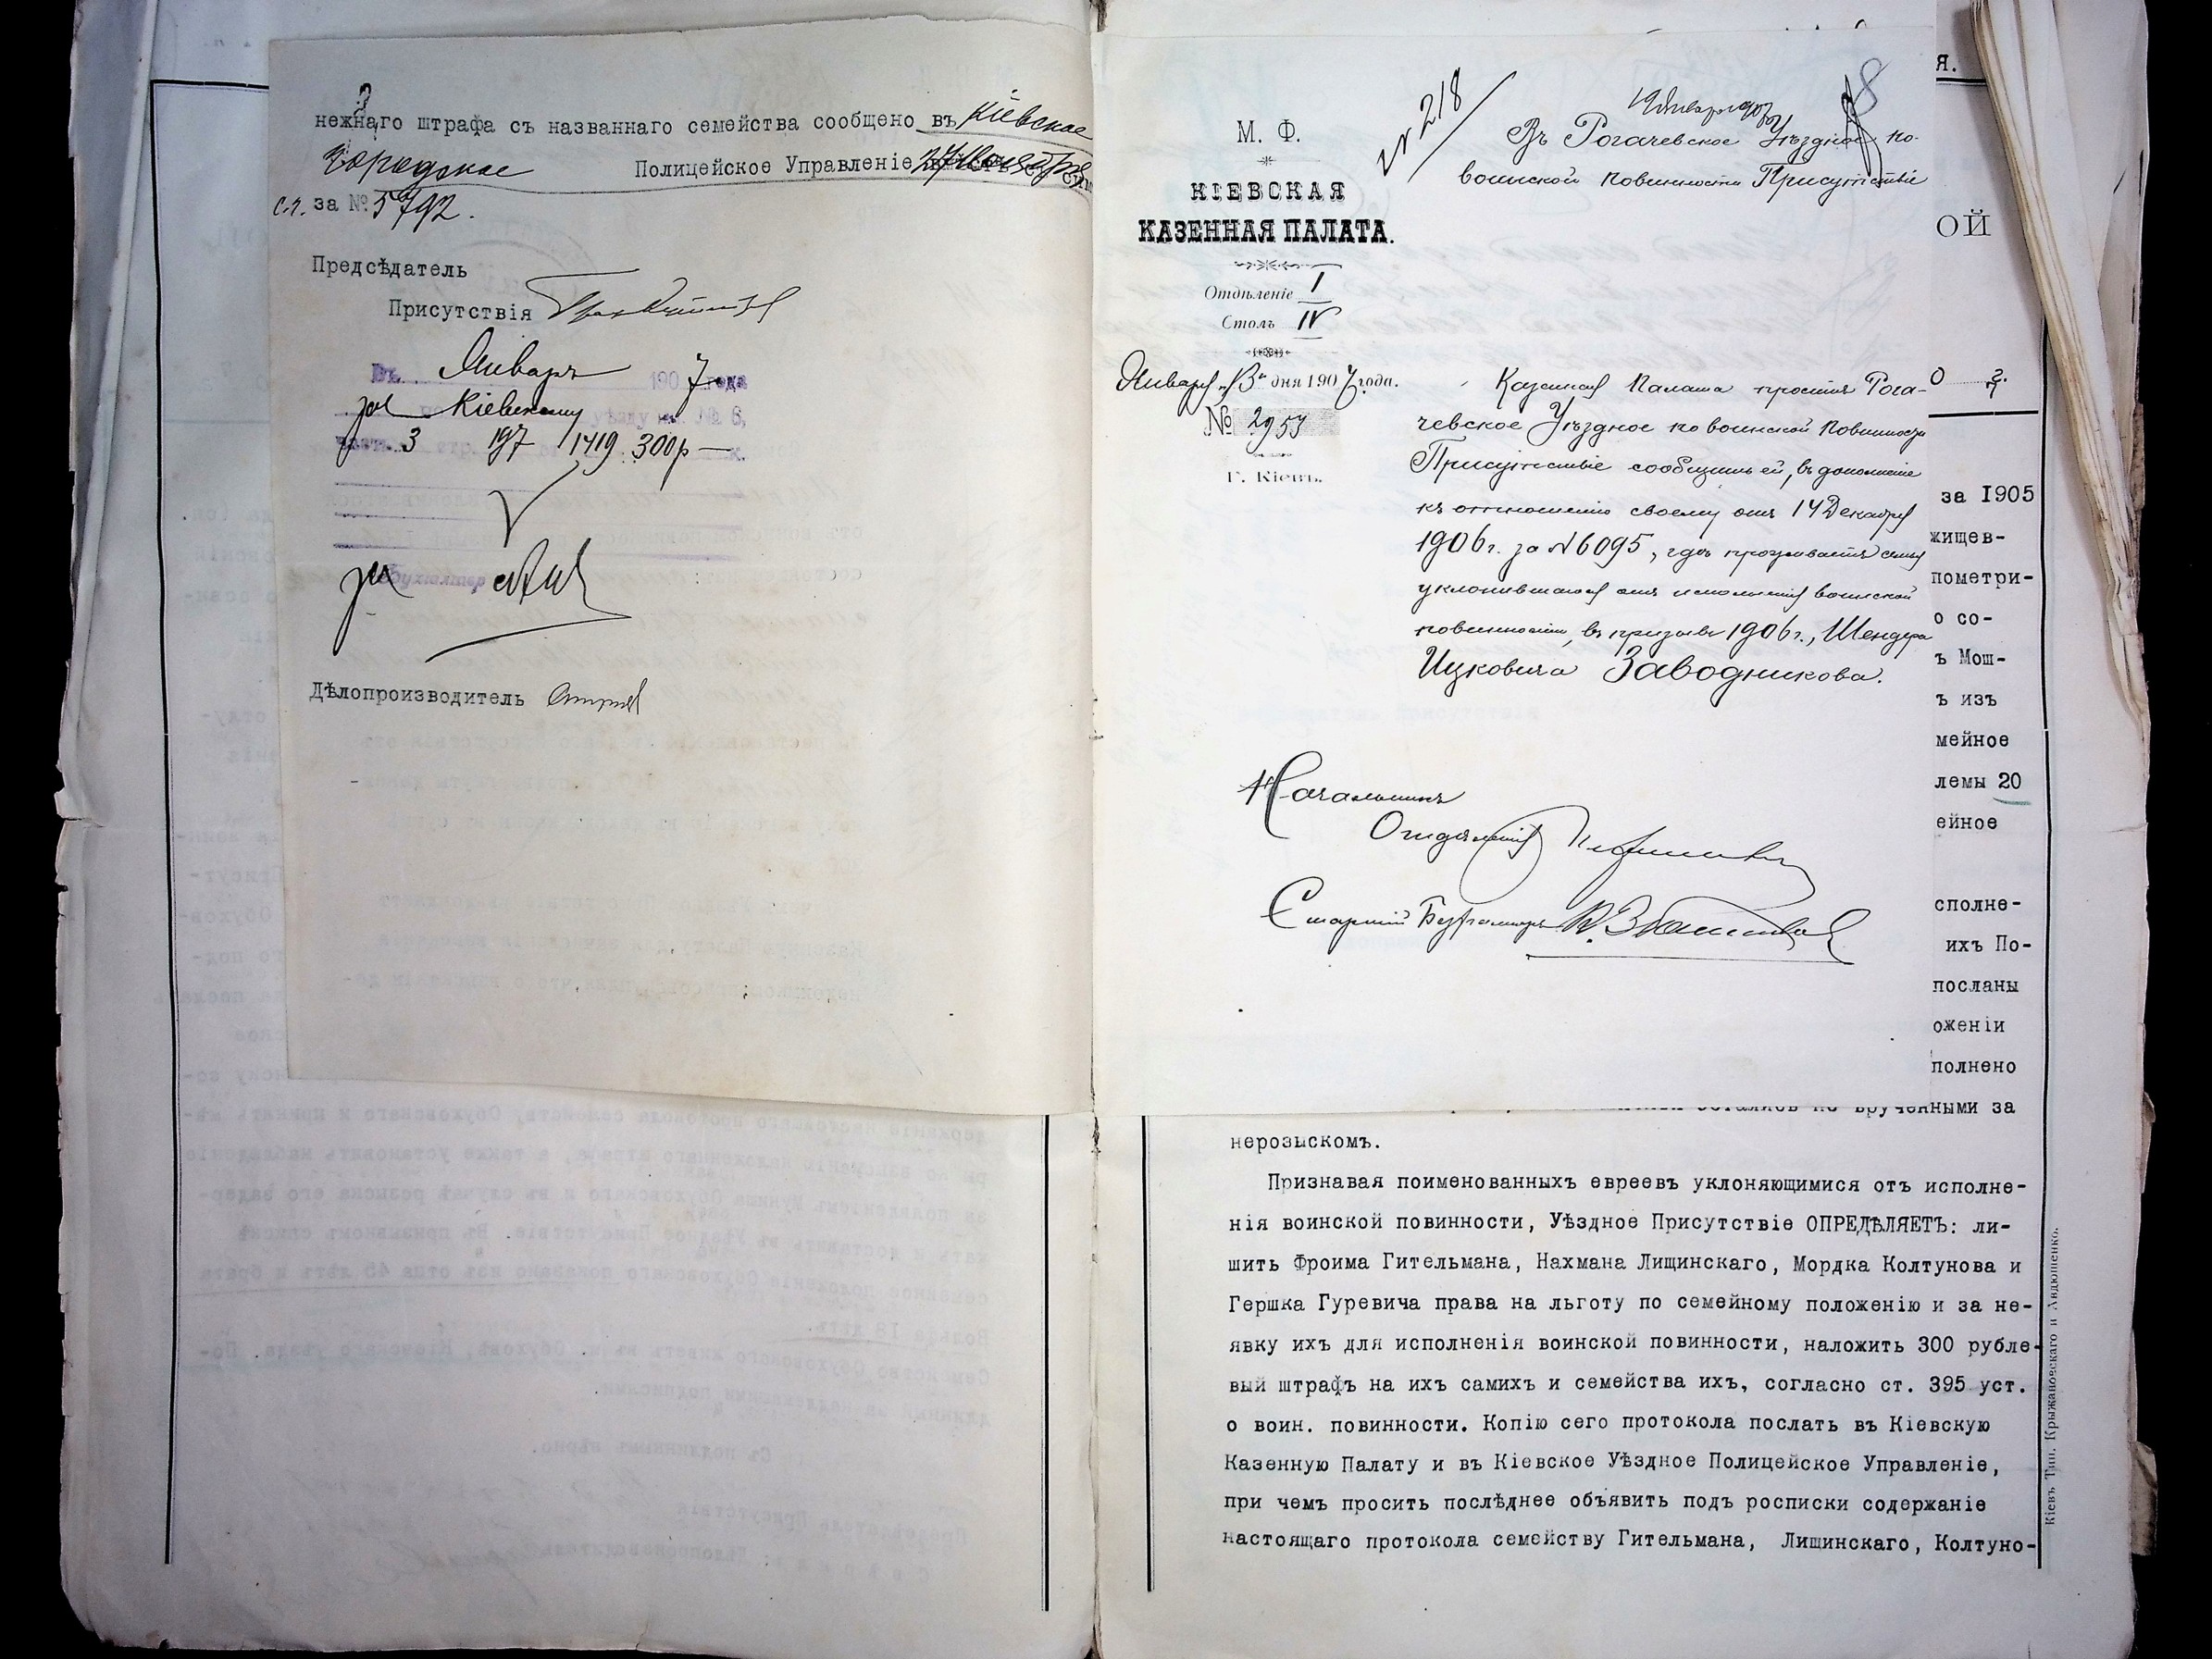 нежнаго штрафа съ названнаго семейства сообщено въ Кіевское
Городское Полицейское Управленіе
с.г. за № 5792.
Предсѣдатель
Присутствія
Въ Январѣ 1907 года
по Кіевскому уѣзду кн. № 6,
част. 3 стр. 197 1419 300 р — к.
Бухгалтер
Дѣлопроизводитель
№ 218
М. Ф.
КІЕВСКАЯ
КАЗЕННАЯ ПАЛАТА.
Отдѣленіе I
Столъ IV
Января „13“ дня 1907 года.
№ 2953
Г. Кіевъ.
19 Января 907
Въ Рогачевское Уѣздное по
воинской повинности Присутствіе
Казенная Палата проситъ Рога-
чевское Уѣздное по воинской повинности
Присутствіе сообщить ей, въ дополненіе
къ отношенію своему отъ 14 Декабря
1906 г. за № 6095, гдѣ проживаетъ семья
уклонившагося отъ исполненія воинской
повинности, въ призывъ 1906 г., Шендера
Ицковича Заводникова.
Начальникъ
Отдѣленія
Старшій Бухгалтеръ
Я.
ОЙ
за 1905
жищев-
пометри-
о со-
ъ Мош-
ъ изъ
мейное
лемы 20
ейное
сполне-
ихъ По-
посланы
оженіи
полнено
врученными за
нерозыскомъ.
Признавая поименованныхъ евреевъ уклоняющимися отъ исполне-
нія воинской повинности, Уѣздное Присутствіе ОПРЕДѢЛЯЕТЪ: ли-
шить Фроима Гительмана, Нахмана Лищинскаго, Мордка Колтунова и
Гершка Гуревича права на льготу по семейному положенію и за не-
явку ихъ для исполненія воинской повинности, наложить 300 рубле-
вый штрафъ на ихъ самихъ и семейства ихъ, согласно ст. 395 уст.
о воин. повинности. Копію сего протокола послать въ Кіевскую
Казенную Палату и въ Кіевское Уѣздное Полицейское Управленіе,
при чемъ просить послѣднее объявить подъ росписки содержаніе
настоящаго протокола семейству Гительмана, Лищинскаго, Колтуно-
Кіевъ Тип. Крыжановскаго и Авдюшенко.